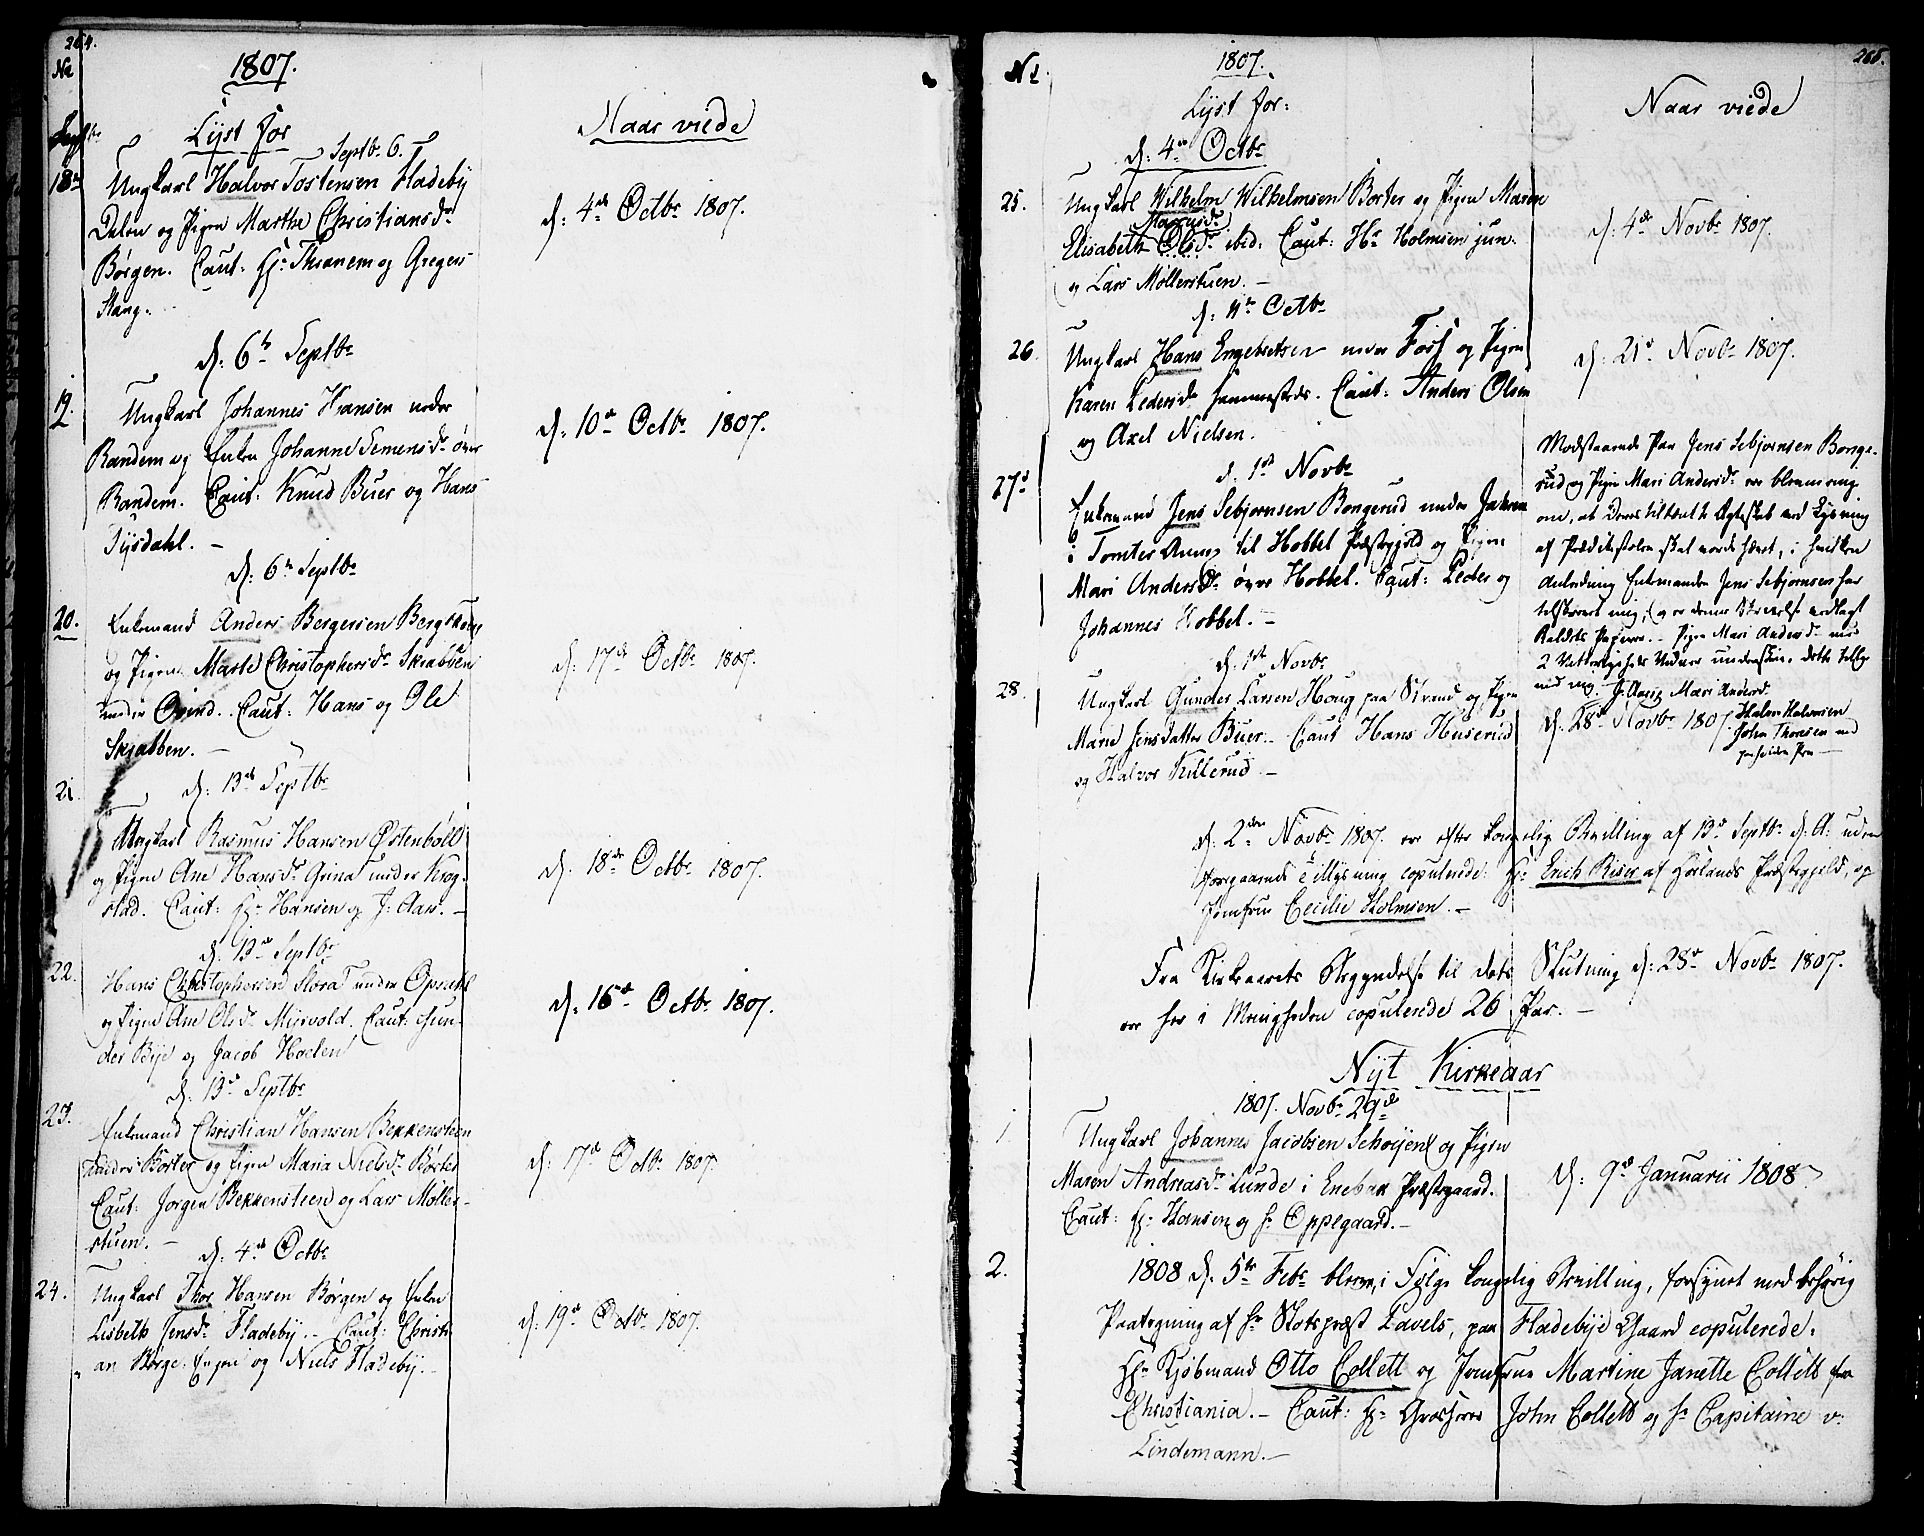 264.
No
1807.
Lyst for
Naar viede
Septbr
Septbr 6.
18. Ungkarl Halvor Tostensen Fladeby
Dalen og Pigen Marthe Christiansdr
Børgen. Caut: Hr Thranem og Gregers
Stang.
d: 4de Octbr 1807.
d: 6te Septbr
19. Ungkarl Johannes Hansen neder
Randem og Enken Johanne Semensdr över
Randem. Caut: Knud Buer og Hans
Tysdahl.
d: 10de Octbr 1807.
d: 6te Septbr
20. Enkemand Anders Bergersen
og Pigen Marte Christophersdr Skrabben
under Ovind. Caut: Hans og Ole
Skrabben.
d: 17de Octbr 1807.
d: 13de Septbr
21. Ungkarl Rasmus Hansen Østenböll
og Pigen Ane Hansdr Grina under Krog-
stad. Caut: Hr Hansen og J: Aars.
d: 18de Octbr 1807.
d: 13de Septbr
22. Hans Christophersen Stora under
og Pigen Ane Olsdr Mysvold. Caut: Gun-
der Bye og Jacob Hoelen
d: 16de Octbr 1807.
d: 13de Septbr
23. Enkemand Christian Hansen Bekkensteen
under Börter og Pigen Maria Nielsdr Börter
Caut: Jørgen Bekkensteen og Lars Møller-
stuen.
d: 17de Octbr 1807.
d: 4de Octbr
24. Ungkarl Thor Hansen Börgen og Enken
Lisbeth Jensdr Fladeby. Caut: Christi-
an Börge. Engen og Niels Fladeby.
d: 19de Octbr 1807.
265.
No
1807.
Lyst for:
Naar viede
d: 4de Octbr
25. Ungkarl Wilhelm Wilhelmsen Börter og Pigen Maren
Magnusdr
Elisabeth Olsdr ibid: Caut: Hr Holmsen jun.
og Lars Møllerstuen.
d: 4de Novbr 1807.
d: 11te Octbr
26. Ungkarl Hans Engebretsen neder Foss og Pigen
Karen Pedersdr sammesteds. Caut: Anders Olsen
og Axel Nielsen.
d: 21de Novbr 1807.
d. 1ste Novbr
27. Enkemand Jens Sebjørnsen Bongerud under
i Tomter Annex til Hobbel Præstegjeld og Pigen
Mari Andersdr övre Hobbel. Caut: Peder og
Johannes Hobbel.
Modstaaende Par Jens Sebjørnsen Bonge-
rud og Pigen Mari Andersdr ere blevne enig
om, at deres tiltænkte Ægteskab med Lysning
af Prædikestolen skal være hævet, i hvilken
Anledning Enkemanden Jens Sebjørnsen har
tilskrevet mig, og er denne Skrivelse vedlagt
Kaldets Papirer. Pigen Mari Andersdr med
2 Vitterligheds Vidner underskrev dette tillige
med mig. J: Aars Mari Andersd.
Halvor Halvorsen
John Thoresen med
paaholden Pen
d: 1ste Novbr
28. Ungkarl Gunder Larsen Houg paa Strand og Pigen
Marie Jensdatter Buer. Caut Hans Huserud
og Halvor Kulerud.
d: 28de Novbr 1807
d: 2den Novbr 1807. ere efter kongelig Bevilling af 13de Septbr d: A: uden
foregaaende Tillysning copulerede: Hr Erich Riser af Hølands Præstegjeld, og
Jomfrue Cecilie Holmsen.
Fra Kirkeaarets Begyndelse til dets Slutning d: 28de Novbr 1807.
ere her i Menigheden copulerede 26 Par.
Nyt Kirkeaar
1807. Novbr 29de
1. Ungkarl Johannes Jacobsen Schøyen og Pigen
Maren Andreasdr Lunde i Enebak Præstegaard.
Caut: Hr Hansen og Hr Oppegaard.
d: 9de Januarii 1808
2. 1808 d: 5te Febr bleve, i Følge kongelig Bevilling, forsynet med behørig
Paategning af Hr Slotspræst Pavels, paa Fladebye Gaard copulerede:
Hr Kjöbmand Otto Collett og Jomfrue Martine Janette Collett fra
Christiania. Caut: Hr Grosserer John Collett og Hr Capitaine v:
Lindemann.